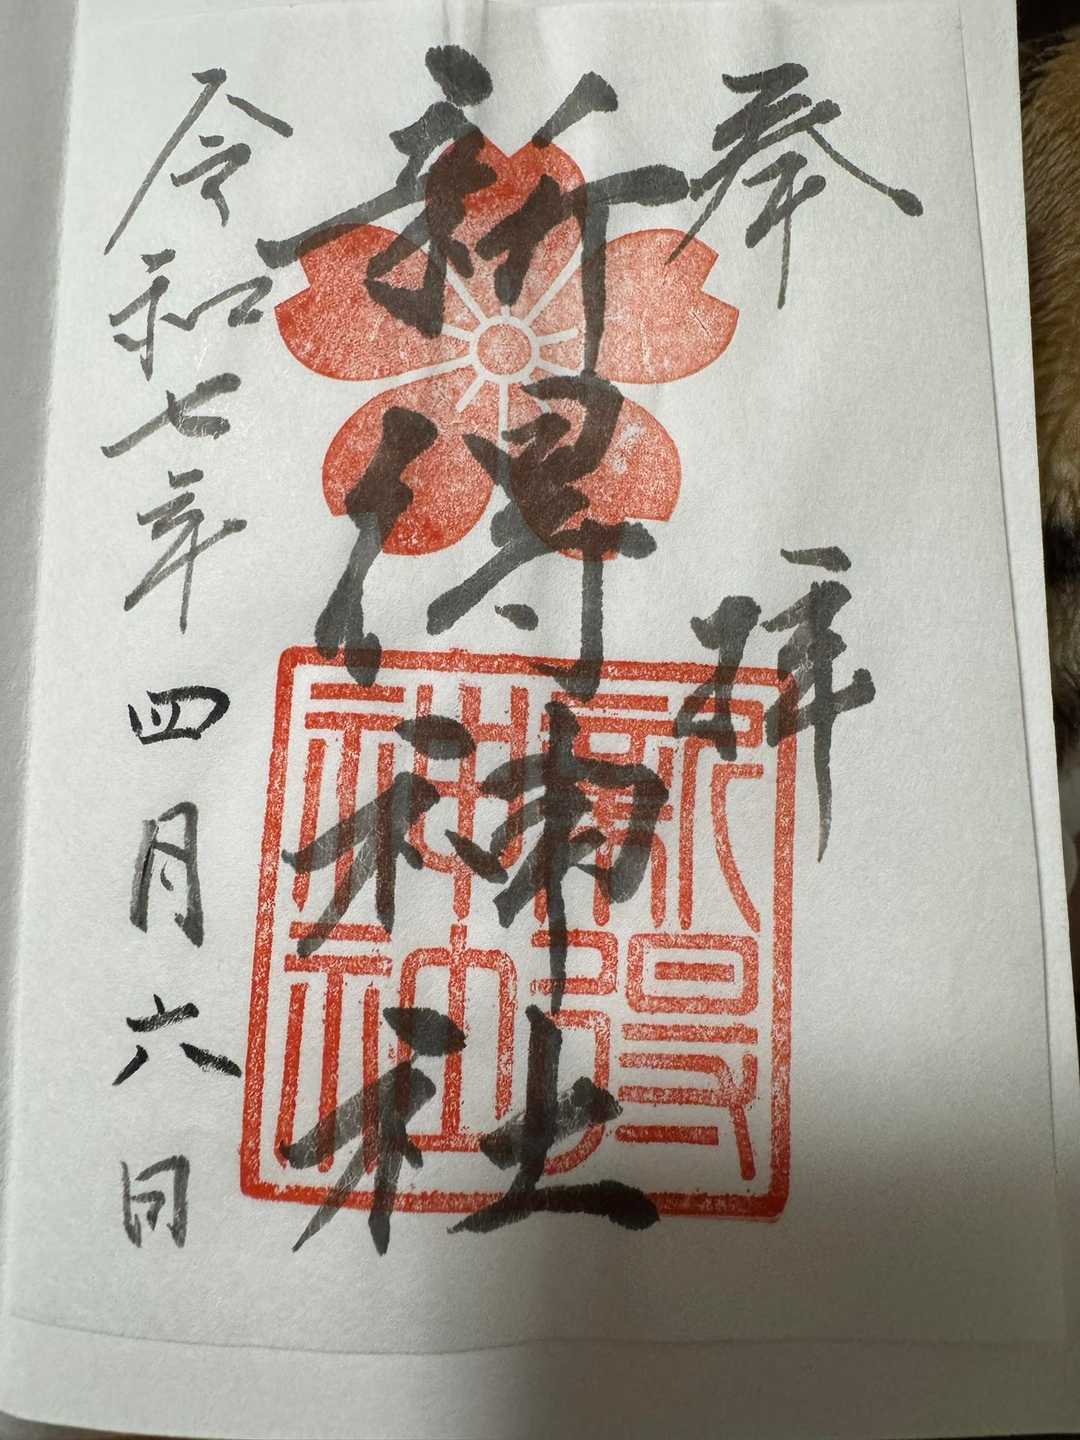 奉拝
新得神社
新得
神社
令和七年四月六日